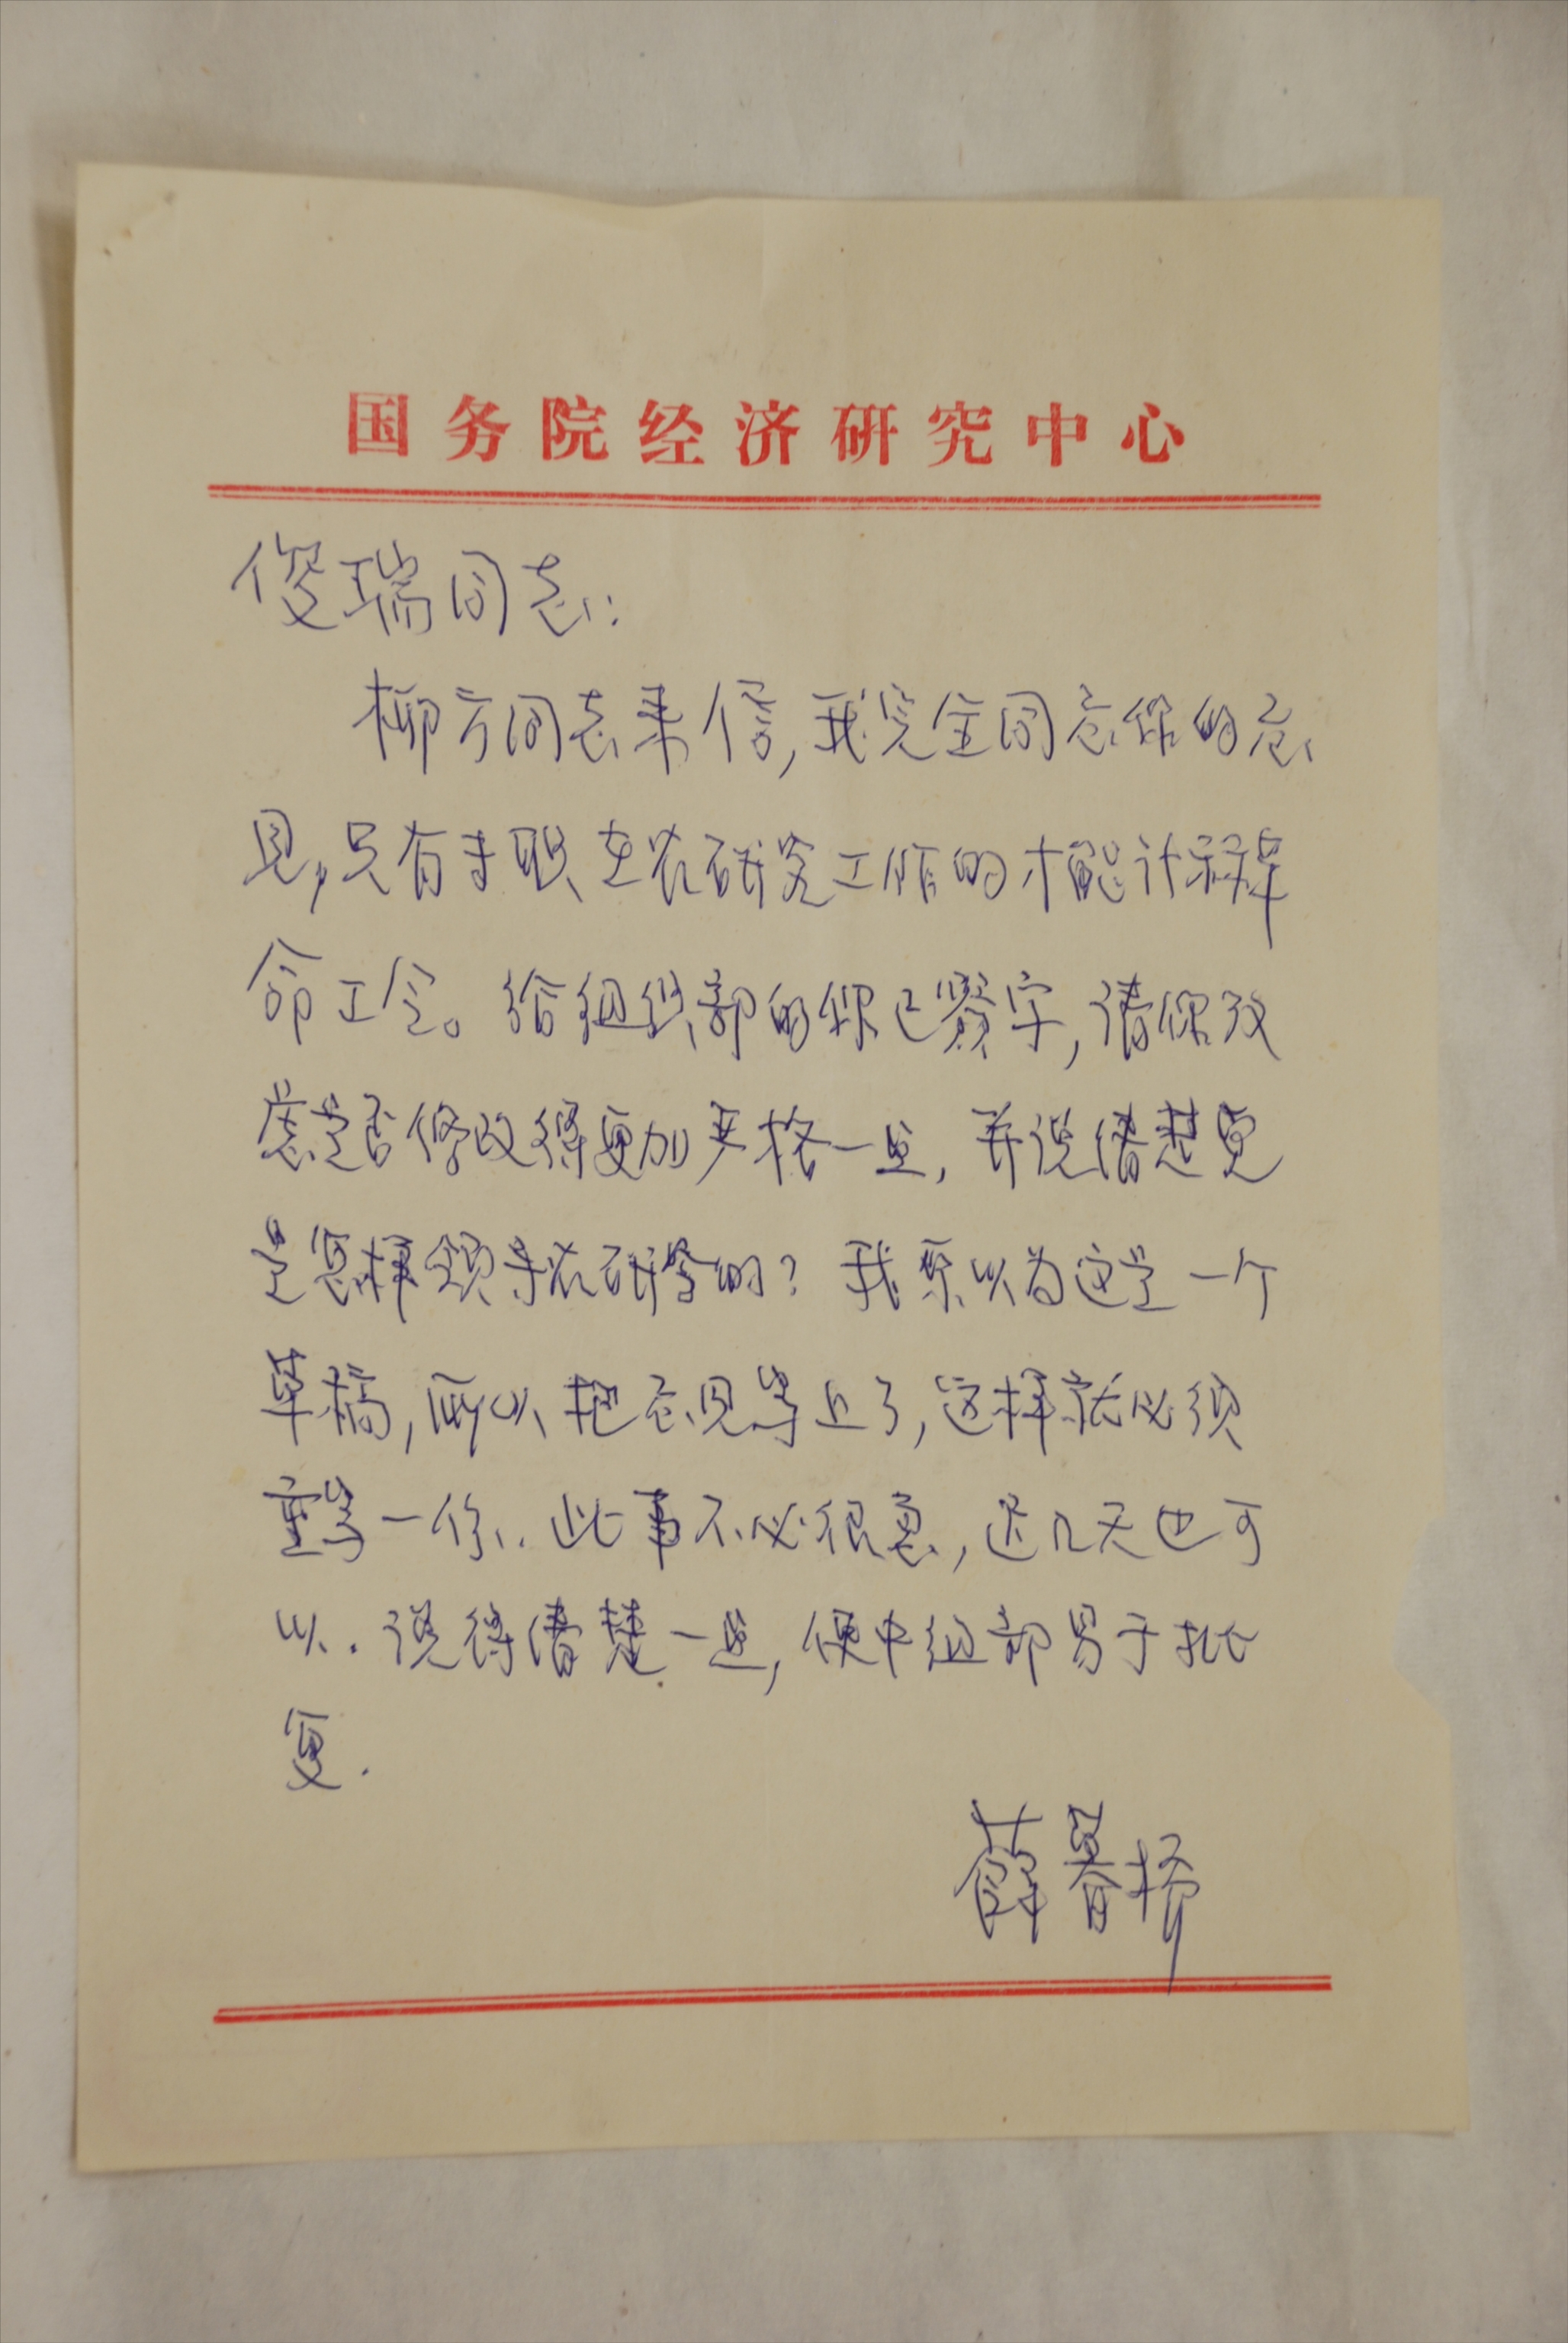 国务院经济研究中心
俊瑞同志:
柳方同志来信,我完全同意你的意
见,只有专职在农研究工作的才能计祘革
命工令。给组织部的你已签字,请你考
虑是否修改得更加严格一些,并说清楚究
是怎样领导农研会的?我原以为这是一个
草稿,所以把意见写上了,这样就必须
重写一份.此事不必很急,迟几天也可
以.说得清楚一些,便中组部易于批
复.
薛暮桥